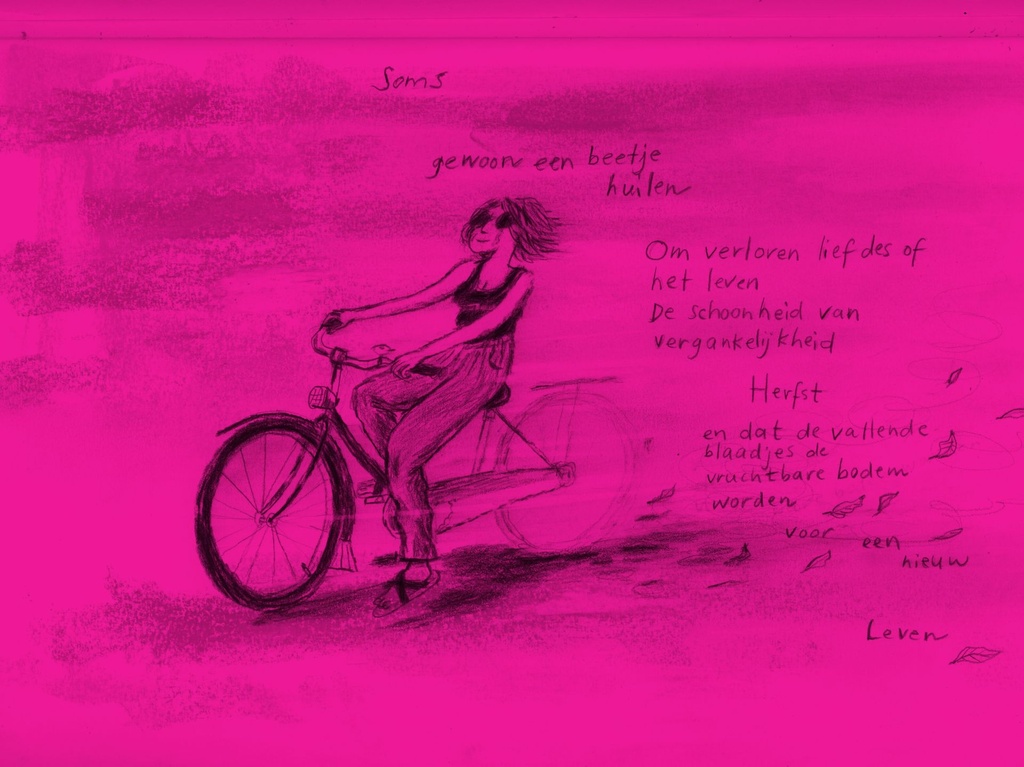 Soms
gewoon een beetje
huilen
Om verloren liefdes of
het leven
De schoonheid van
vergankelijkheid
Herfst
en dat de vallende
blaadjes de
vruchtbare bodem
worden
voor een
nieuw
Leven